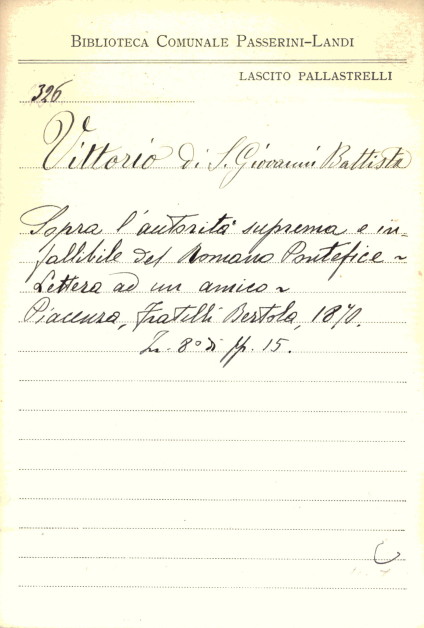 BIBLIOTECA COMUNALE PASSERINI-LANDI
LASCITO PALLASTRELLI
326
Vittorio di S. Giovanni Battista
Sopra l'autorità suprema e in=
fallibile del Romano Pontefice ~
Lettera ad un amico ~
Piacenza, Fratelli Bertola, 1870.
In 8º di pp. 15.